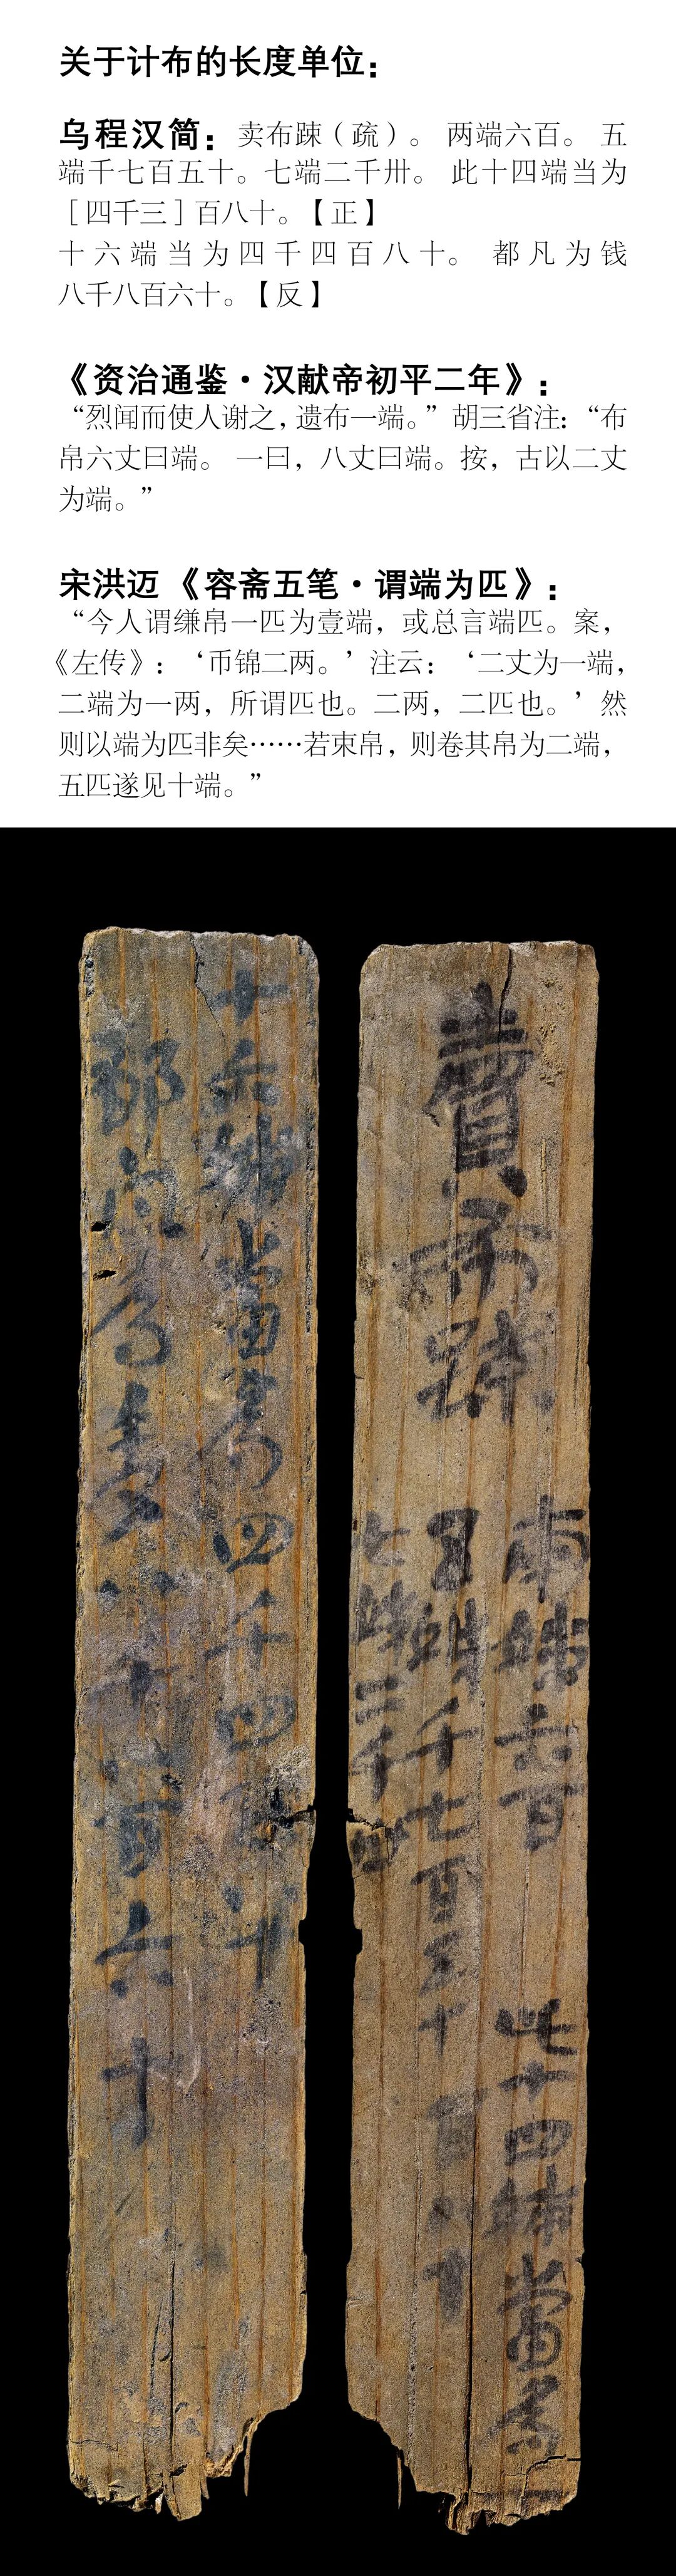 关于计布的长度单位：
乌程汉简：卖布踈（疏）。 两端六百。 五
端千七百五十。七端二千卌。 此十四端当为
［四千三］百八十。【正】
十六端当为四千四百八十。 都凡为钱
八千八百六十。【反】
《资治通鉴·汉献帝初平二年》：
“烈闻而使人谢之，遗布一端。”胡三省注：“布
帛六丈曰端。 一曰，八丈曰端。按，古以二丈
为端。”
宋洪迈《容斋五笔·谓端为匹》：
“今人谓缣帛一匹为壹端，或总言端匹。案，
《左传》：‘币锦二两。’注云：‘二丈为一端，
二端为一两，所谓匹也。二两，二匹也。’然
则以端为匹非矣……若束帛，则卷其帛为二端，
五匹遂见十端。”
賣布踈
兩端六百 此十四端當爲
五端千七百五十 百八十
七端二千卌
十六端當爲四千四百八十
都凡爲錢八千八百六十